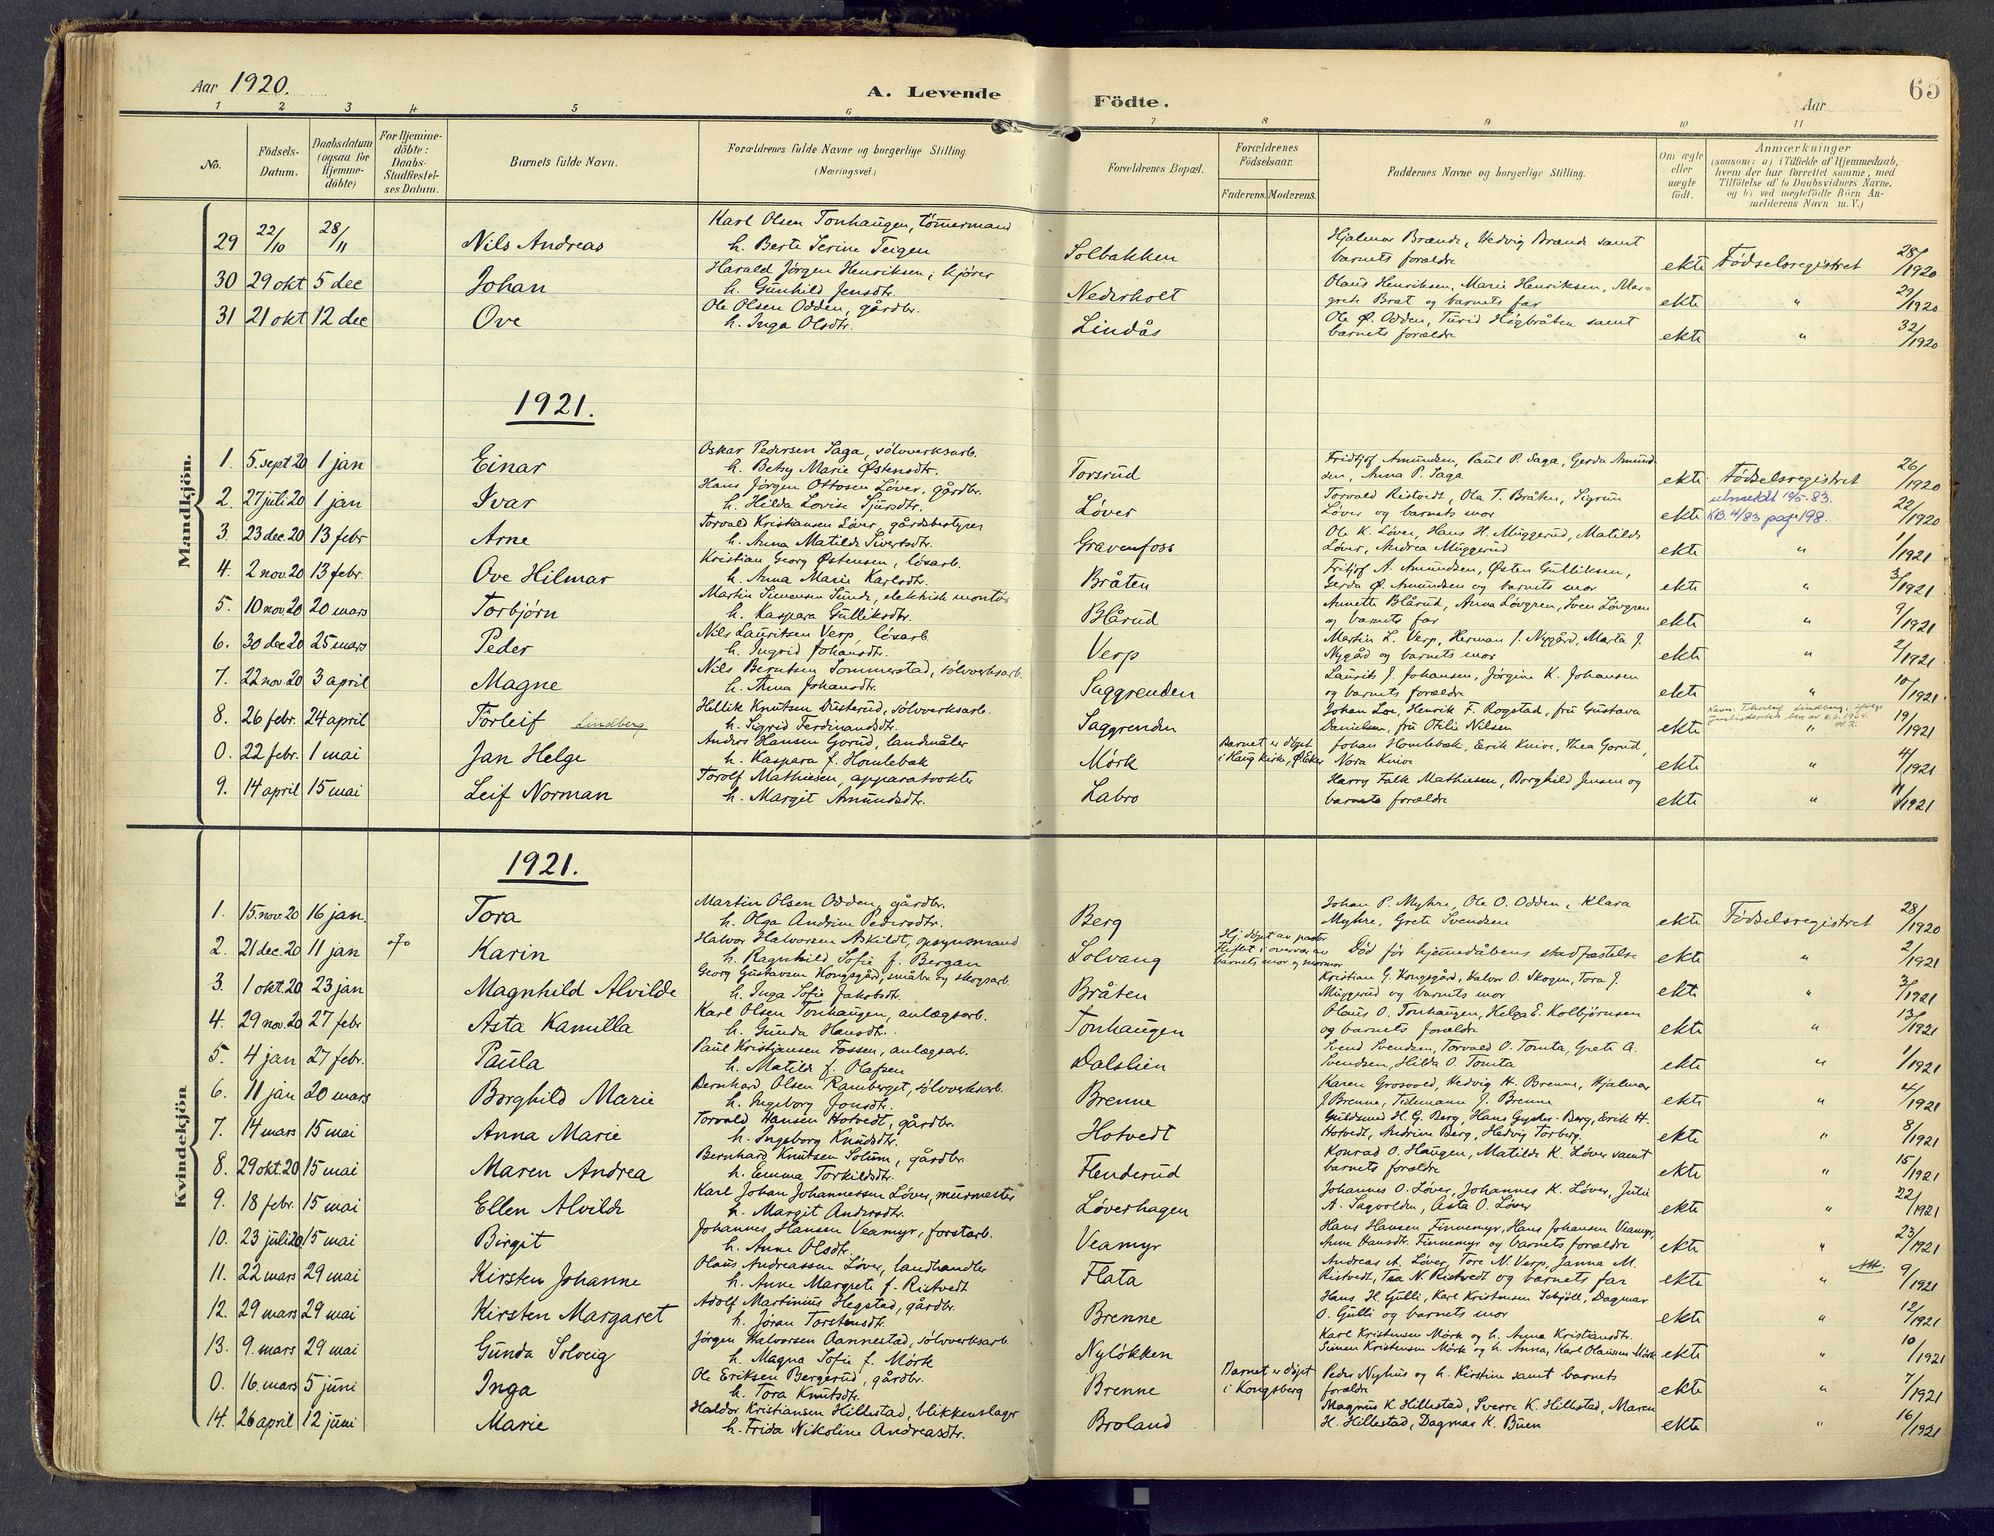 Aar 1920. A. Levende Födte. Aar 65
1 2 3 4 5 6 7 8 9 10 11
No. Födsels-Datum. Daabsdatum (ogsaa för Hjemmedöbte) For Hjemmedöbte: Daabs-Stadfestelses Datum. Barnets fulde Navn. Forældrenes fulde Navne og borgerlige Stilling (Næringsvei.) Forældrenes Bopæl. Forældrenes Födselsaar. Faderens. Moderens. Faddernes Navne og borgerlige Stilling. Om ægte eller uægte födt. Anmærkninger (saasom: a) i Tilfælde af Hjemmedaab, hvem der har forrettet samme, med Tilföielse af to Daabsvidners Navne, og b) ved uægtefödte Börn Anmelderens Navn m. V.)
Mandkjön.
29 22/10 28/11 Nils Andreas Karl Olsen Tonhaugen, tömmermand
h. Berte Serine Teigen Solbakken Hjalmar Brænde, Hedvig Brænde samt
barnets forældre ekte Fødselsregistret 28/1920
30 29 okt 5 dec Johan Harald Jörgen Henriksen, kjører
h. Gunhild Jensdtr. Nederholt Olaus Henriksen, Marie Henriksen, Mar-
grete Brat og barnets far ekte " 29/1920
31 21 okt 12 dec Ove Ole Olsen Odden, gårdbr.
h. Inga Olsdtr. Lindås Ole Ø. Odden, Turid Högbråten samt
barnets forældre ekte " 32/1920
1921.
1. 5. sept 20 1 jan Einar Oskar Pedersen Saga, sølvverksarb.
h. Betsy Marie Østensdtr. Torsrud Fridtjof Amundsen, Paul P. Saga, Gerda Amund
sen, Anna P. Saga ekte Fødselsregistret 26/1920
2. 27 juli 20 1 jan Ivar Hans Jörgen Ottosen Løver, gårdbr.
h. Hilda Lovise Sjursdtr. Løver Torvald Ristvedt, Ola T. Bråten, Sigrun
Løver og barnets mor ekte utmeldt 19/5-83.
KB. 4/83 pag 198. 22/1920
3. 23 dec. 20 13 febr Arne Torvald Kristiansen Løver, gårdsbestyrer
h. Anna Matilde Sivertsdtr. Gravenfoss Ole K. Løver, Hans H. Muggerud, Matilde
Løver, Andrea Muggerud ekte " 1/1921
4. 2 nov 20 13 febr. Ove Hilmar Kristian Georg Østensen, løsarb.
h. Anna Marie Karlsdtr. Bråten Fritjof A. Amundsen, Østen Gulliksen,
Gerda Ø. Amundsen og barnets mor ekte " 3/1921
5. 10 nov 20 20 mars Torbjørn Martin Simensen Sunde, elektrisk montør
h. Kaspara Gulliksdtr. Blårud Annette Blårud, Anna Løvgren, Sven Løvgren
og barnets far ekte " 9/1921
6. 30 dec 20 25 mars Peder Nils Lauritsen Verp, løsarb.
h. Ingrid Johansdtr. Verp Martin L. Verp, Herman J. Nygård, Marta J.
Nygård og barnets mor ekte " 2/1921
7. 22 nov 20 3 april Magne Nils Berntsen Sommerstad, sølvverksarb.
h. Anna Johansdtr. Saggrenden Laurits J. Johansen, Jörgine K. Johansen
og barnets forældre ekte " 10/1921
8. 26 febr. 24 april Torleif Lindberg Hellik Knutsen Dusterud, sølvverksarb.
h. Sigrid Ferdinandsdtr. Saggrenden Johan Loe, Henrik F. Rogstad, fru Gustava
Danielsen, fru Otilie Nilsen ekte " 19/1921
0. 22 febr. 1 mai Jan Helge Anders Hansen Gorud, landmåler
h. Kaspara f. Homlebæk Mørk Barnet er döpt
i Haug kirke, Ø. Eker Johan Homlebæk, Erik Knive, Thea Gorud,
Nora Knive ekte " 4/1921
9. 14 april 15 mai Leif Norman Torolf Mathiesen, apparatvokter
h. Margit Amundsdtr. Labro Harry Falk Mathiesen, Borghild Jensen og
barnets forældre ekte " 11/1921
Kvindekjön
1921.
1. 15. nov. 20 16 jan. Tora Martin Olsen Odden, gårdbr.
h. Olga Andrine Pedersdtr. Berg Johan P. Myhre, Ole O. Odden, Klara
Myhre, Grete Svendsen ekte Fødselsregistret 28/1920
2. 21 dec. 20 11 jan Karin Halvor Halvorsen Askildt, opsynsmand
h. Ragnhild Sofie f. Bergan Solvang Hj. döpt av pastor
Fliflet i overvær av
barnets mor og mormor Död før hjemmedåbens stadfæstelse ekte " 2/1921
3. 1 okt. 20 23 jan Magnhild Alvilde Georg Gustavsen Kongsgård, småbr. og skogsarb.
h. Inga Sofie Jakobsdtr. Bråten Kristian G. Kongsgård, Halvor O. Skogen, Tora J.
Muggerud og barnets mor ekte " 3/1921
4. 29 nov. 20 27 febr Asta Kamilla Karl Olsen Tonhaugen, anlægsarb.
h. Gunda Hansdtr. Tonhaugen Olaus O. Tonhaugen, Helga E. Kolbjørnsen
og barnets forældre ekte " 13/1921
5. 4 jan 27 febr. Paula Paul Kristjansen Fossen, anlægsarb.
h. Matilde f. Olafsen Dalslien Svend Svendsen, Torvald O. Tomta, Grete A.
Svendsen, Hilda O. Tomta ekte " 1/1921
6. 11 jan 20 mars Borghild Marie Bernhard Olsen Ramberget, sølvverksarb.
h. Ingeborg Jonsdtr. Brenne Karen Grosvold, Hedvig H. Brenne, Hjalmar
J. Brenne, Tidemann J. Brenne ekte " 4/1921
7. 14 mars 15 mai Anna Marie Torvald Hansen Hotvedt, gårdbr.
h. Ingeborg Knudsdtr. Hotvedt Guldsmed H. G. Berg, Hans Gysler-Berg, Erik H.
Hotvedt, Andrine Berg, Hedvig Torberg. ekte " 8/1921
8. 29 okt. 20 15 mai Maren Andrea Bernhard Knutsen Solum, gårdbr.
h. Emma Torkildsdtr. Flenderud Konrad O. Haugen, Matilde K. Løver samt
barnets forældre ekte " 15/1921
9. 18 febr. 15 mai Ellen Alvilde Karl Johan Johannessen Løver, murmester
h. Margit Andersdtr. Løverhagen Johannes O. Løver, Johannes K. Løver, Julie
A. Sagvolden, Asta O. Løver ekte " 22/1921
10. 23 juli 20 15 mai Birgit Johannes Hansen Veamyr, forstarb.
h. Anne Olsdtr. Veamyr Hans Hansen Finnemyr, Hans Johansen Veamyr,
Anne Hansdtr. Finnemyr og barnets forældre ekte " 23/1921
11. 22 mars 29 mai Kirsten Johanne Olaus Andreassen Løver, landhandler
h. Anne Margrete f. Ristvedt Flata Andreas A. Løver, Tore N. Verp, Janna M.
Ristvedt, Tea N. Ristvedt og barnets far ekte " 9/1921
12. 29 mars 29 mai Kirsten Margaret Adolf Martinius Hegstad, gårdbr.
h. Jöran Torstensdtr. Brenne Hans H. Gulli, Karl Kristensen Schjöll, Dagmar
O. Gulli og barnets mor ekte " 12/1921
13. 9. mars 29 mai Gunda Solveig Jörgen Halvorsen Aannestad, sølvverksarb.
h. Magna Sofie f. Mørk Nyløkken Karl Kristensen Mørk og h. Anna Kristiansdtr.
Simen Kristensen Mørk og h. Anna, Karl Olausen Mørk ekte " 10/1921
0. 16 mars 5 juni Inga Ole Eriksen Bergerud, gårdbr.
h. Tora Knutsdtr. Brenne Barnet er döpt
i Kongsberg Peder Nyhus og h. Kirstine samt barnets
forældre ekte " 7/1921
14. 26 april 12 juni Marie Haldor Kristiansen Hillestad, blikkenslager
h. Frida Nikoline Andreasdtr. Broland Magnus K. Hillestad, Sverre K. Hillestad, Maren
H. Hillestad, Dagmar K. Buen ekte " 16/1921